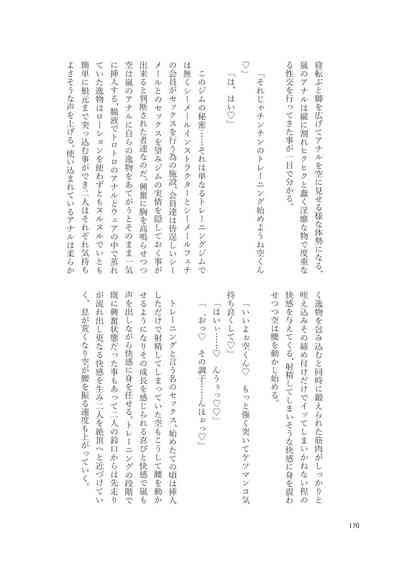 寝転ぶと脚を広げてアナルを空に見せる様な体勢になる。
嵐のアナルは縦に割れヒクヒクと蠢く淫靡な物で度重な
る性交を行ってきた事が一目で分かる。
「それじゃチンチンのトレーニング始めようね空くん
♡」
「は、はい♡」
このジムの秘密……それは単なるトレーニングジムで
は無くシーメールインストラクターとシーメールフェチ
の会員がセックスを行う為の施設。会員達は皆逞しいシー
メールとのセックスを望みジムの実情を隠しておく事が
出来ると判断された者達なのだ。興奮に胸を高鳴らせつつ
空は嵐のアナルに自らの逸物をあてがうとそのまま一気
に挿入する。腸液でトロトロのアナルとウェアの中で蒸れ
ていた逸物はローションを使わずともヌルヌルでいとも
簡単に根元まで突っ込む事ができ二人はそれぞれ気持ち
よさそうな声を上げる。使い込まれているアナルは柔らか
く逸物を包み込むと同時に鍛えられた筋肉がしっかりと
咥え込みその締め付けだけでイッてしまいかねない程の
快感を与えてくる。射精してしまいそうな快感に身を震わ
せつつ空は腰を動かし始める。
「いいよぉ空くん♡　もっと強く突いてケツマンコ気
持ち良くして♡」
「はいぃ……♡　んうぅっ♡♡」
「、おっ♡　その調子……んほぉっ♡」
トレーニングと言う名のセックス。始めたての頃は挿入
しただけで射精してしまっていた空もこうして腰を動か
せるようになりその成長を感じられる喜びと快感で嵐も
声を出しながら快感に身を任せる。トレーニングの段階で
既に興奮状態だった事もあって二人の鈴口からは先走り
が流れ出し更なる快感を生み二人を絶頂へと近づけてい
く。息が荒くなり空が腰を振る速度も上がっていく。
170